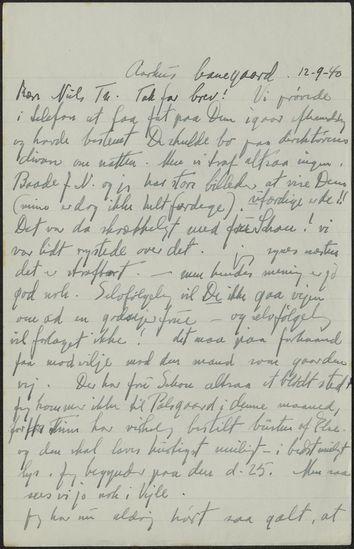 Aarhus banegaard. 12-9-40
Kære Niels Th. Tak for brev! Vi prøvede
i telefon at faa fat paa Dem igaar
og havde bestemt De skulde bo paa direktørens
divan om natten. Men vi traf altsaa ingen.
Baade f. N. og jeg har store billeder at vise Dem
(mine er dog ikke helt færdige)
Det var da skrækkeligt med frue Schou! vi
var lidt rystede over det. synes næsten
det er strafbart — men hendes mening er jo
god nok. Selvfølgelig vil De ikke gaa vejen
om ad en frue — og selvfølgelig
vil forlaget ikke. det maa paa forhaand
faa modvilje mod den mand som gaar den
vej. Der har frue Schou altsaa et blødt sted
Jeg kommer ikke til Palsgaard i denne maaned,
har virkelig bestilt busten af Else.
og den skal laves hurtigst muligt — i bedst muligt
lys. Jeg begynder paa den d. 25. Men saa
sees vi jo nok i Vejle.
Jeg har nu aldrig hørt saa galt, at